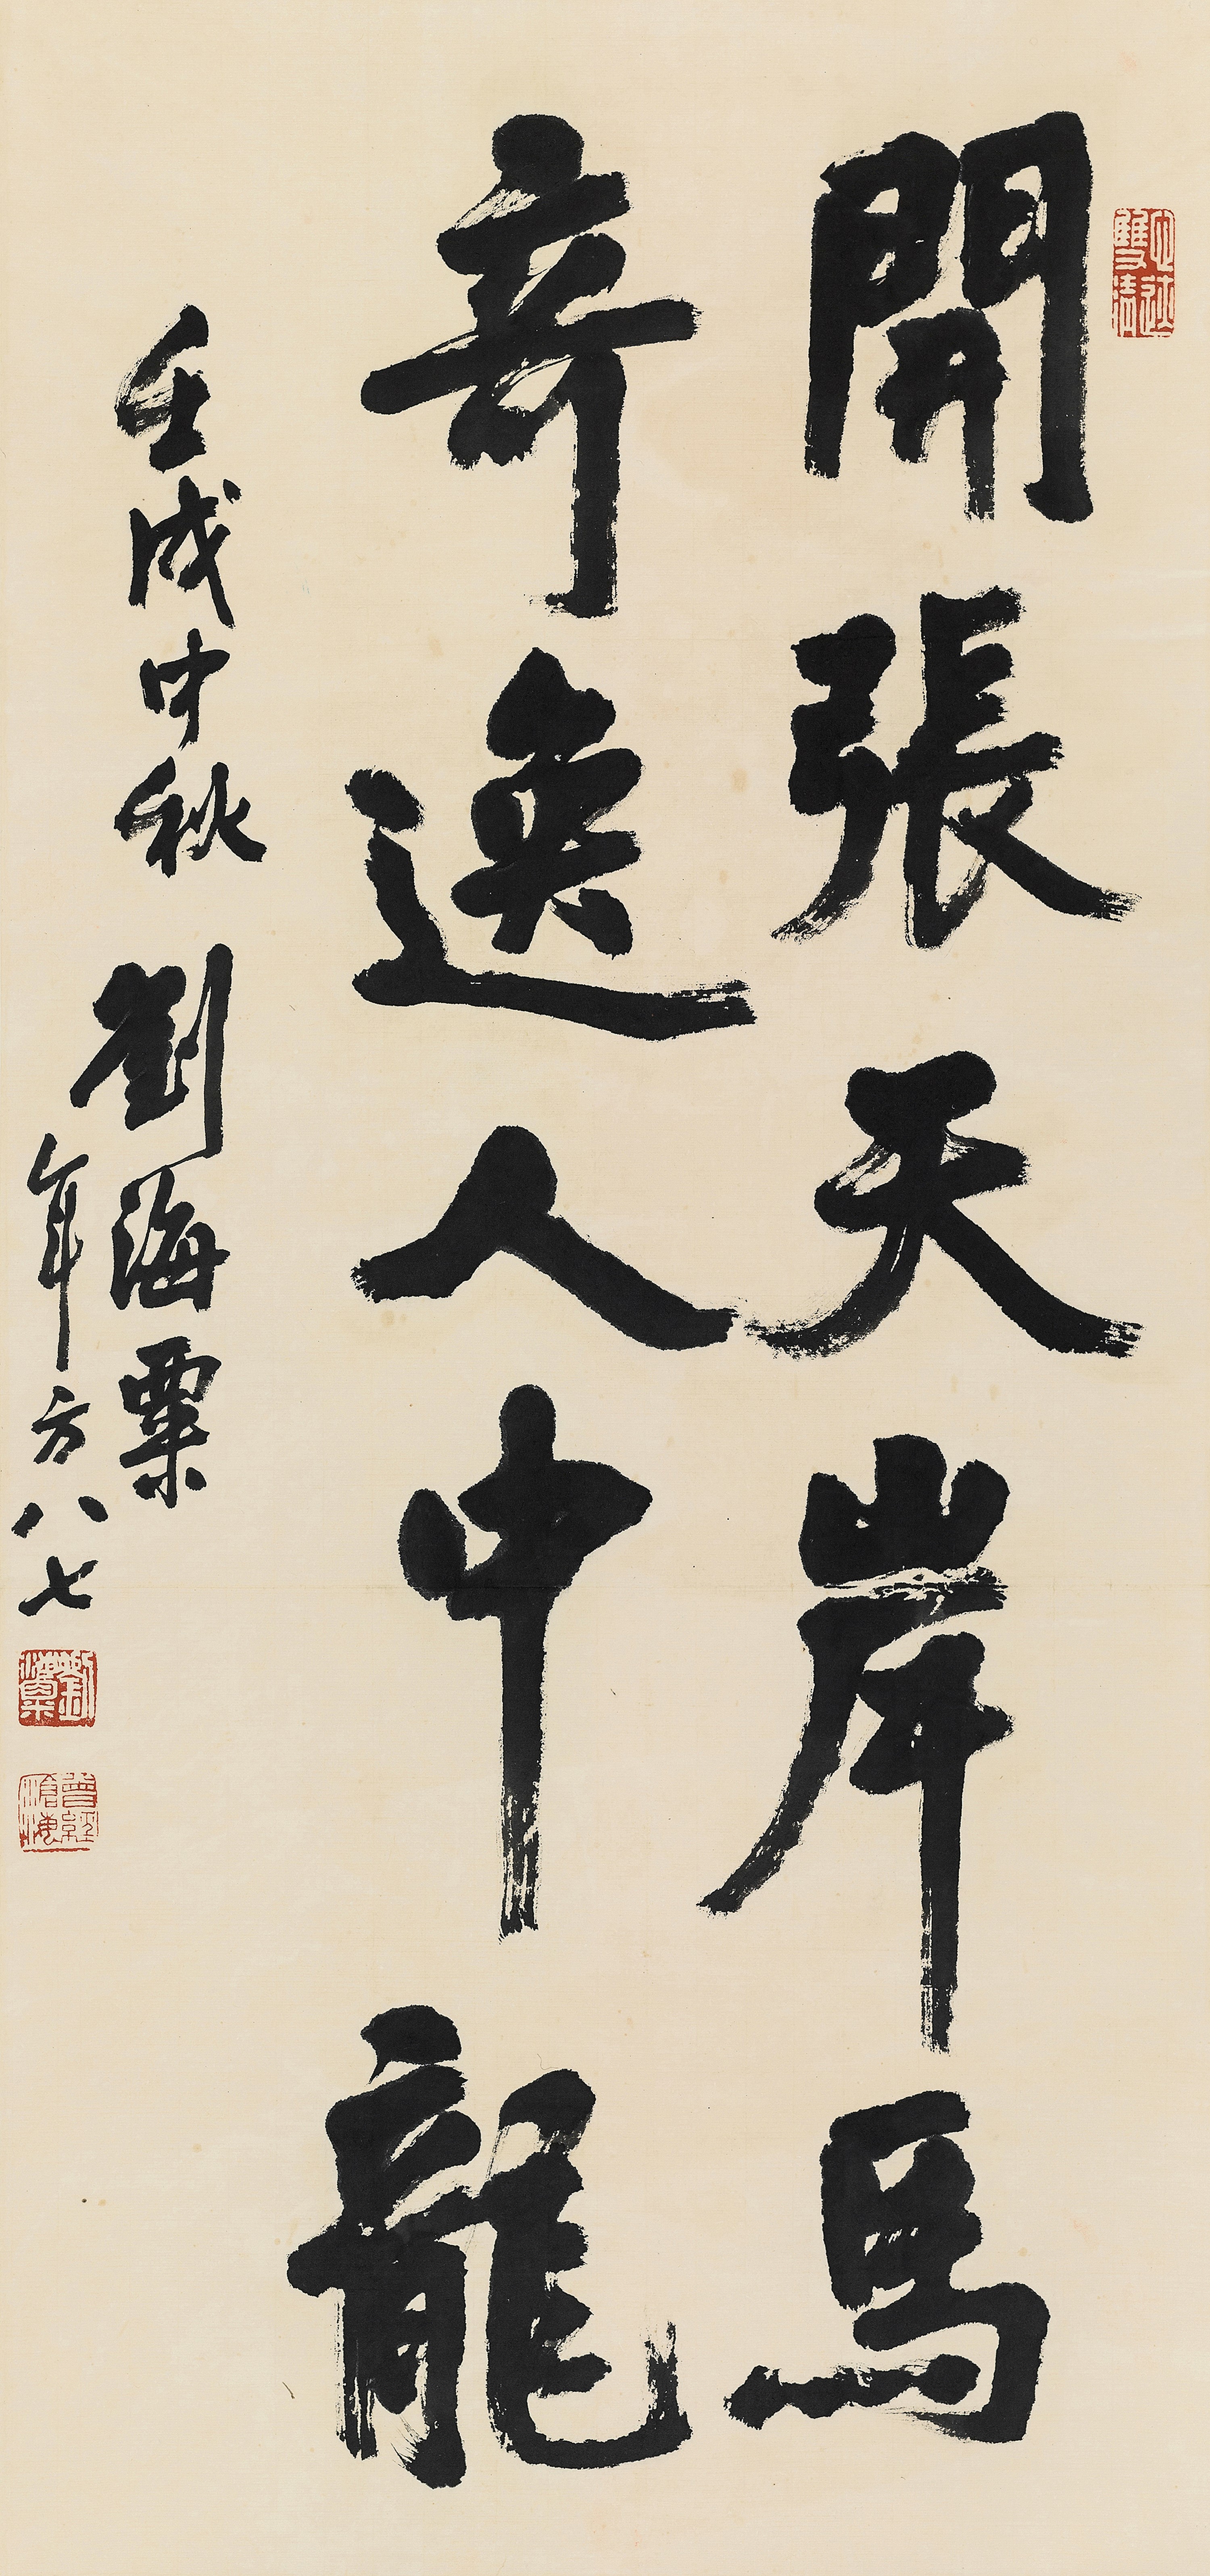 心迹雙清
開張天岸馬
奇逸人中龍
壬戌中秋 劉海粟
年方八七
劉海粟
曾經滄海